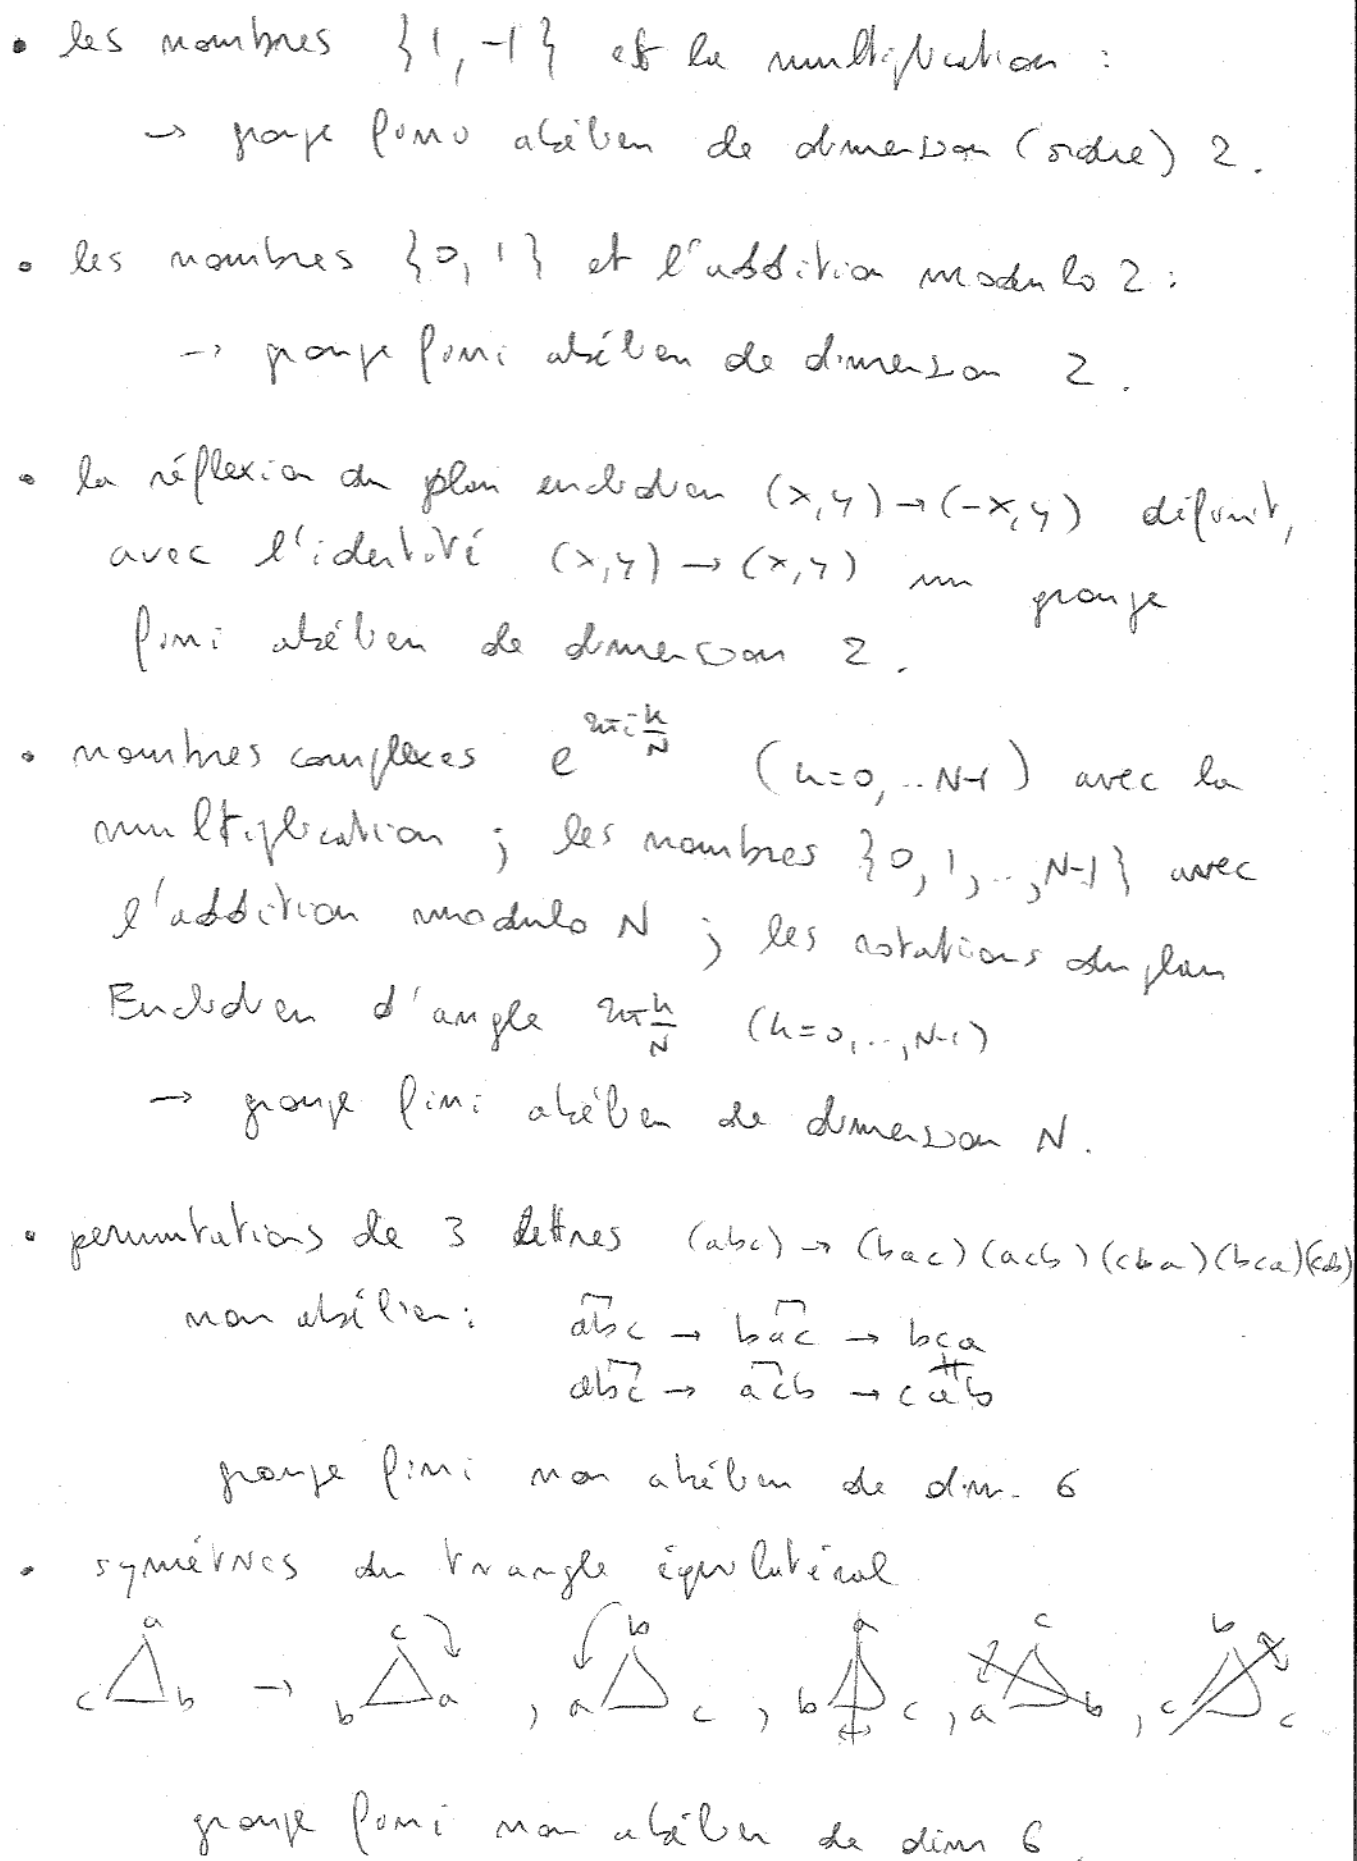 • les nombres {1, -1} et la multiplication :
→ groupe fini abélien de dimension (ordre) 2.
• les nombres {0, 1} et l'addition modulo 2 :
→ groupe fini abélien de dimension 2.
• la réflexion du plan euclidien (x,y) → (-x,y) définit,
avec l'identité (x,y) → (x,y) un groupe
fini abélien de dimension 2.
• nombres complexes e^{2πi k/N} (k=0,..N-1) avec la
multiplication ; les nombres {0, 1, .., N-1} avec
l'addition modulo N ; les rotations du plan
Euclidien d'angle 2π k/N (k=0,..,N-1)
→ groupe fini abélien de dimension N.
• permutations de 3 lettres (abc) → (bac) (acb) (cba) (bca) (cab)
non abélien : abc → bac → bca
≠
abc → acb → cab
groupe fini non abélien de dim. 6
• symétries du triangle équilatéral
a c b a c b
c b → b a , a c , b c , a b , c c
groupe fini non abélien de dim 6.